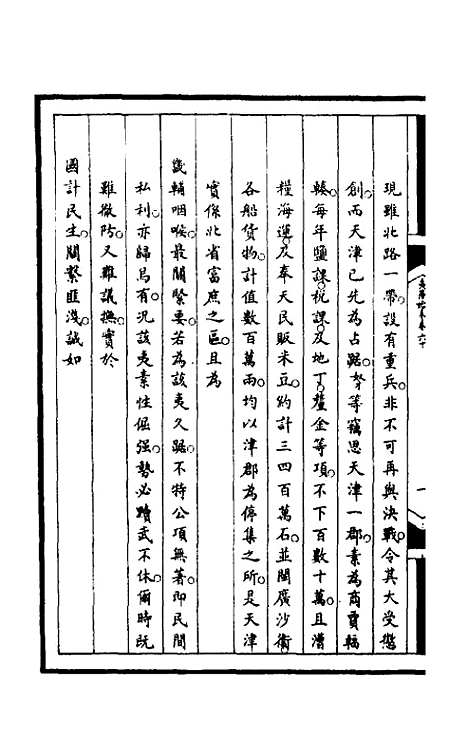 現雖北路一帶。設有重兵。非不可再與決戰。令其大受懲
創。而天津已先為占踞。奴等竊思天津一郡。素為商賈輻
輳。每年鹽課。稅課。及地丁。釐金等項。不下百數十萬。且漕
糧海運。及奉天民販米豆。約計三四百萬石。並閩廣沙衛
各船貨物。計值數百萬兩。均以津郡為停集之所。是天津
實係北省富庶之區。且為
畿輔咽喉。最關緊要。若為該夷久踞。不特公項無著。即民間
私利。亦歸烏有。況該夷素性倔强。勢必黷武不休。爾時既
難徹防。又難議撫。實於
國計民生。關繫匪淺。誠如